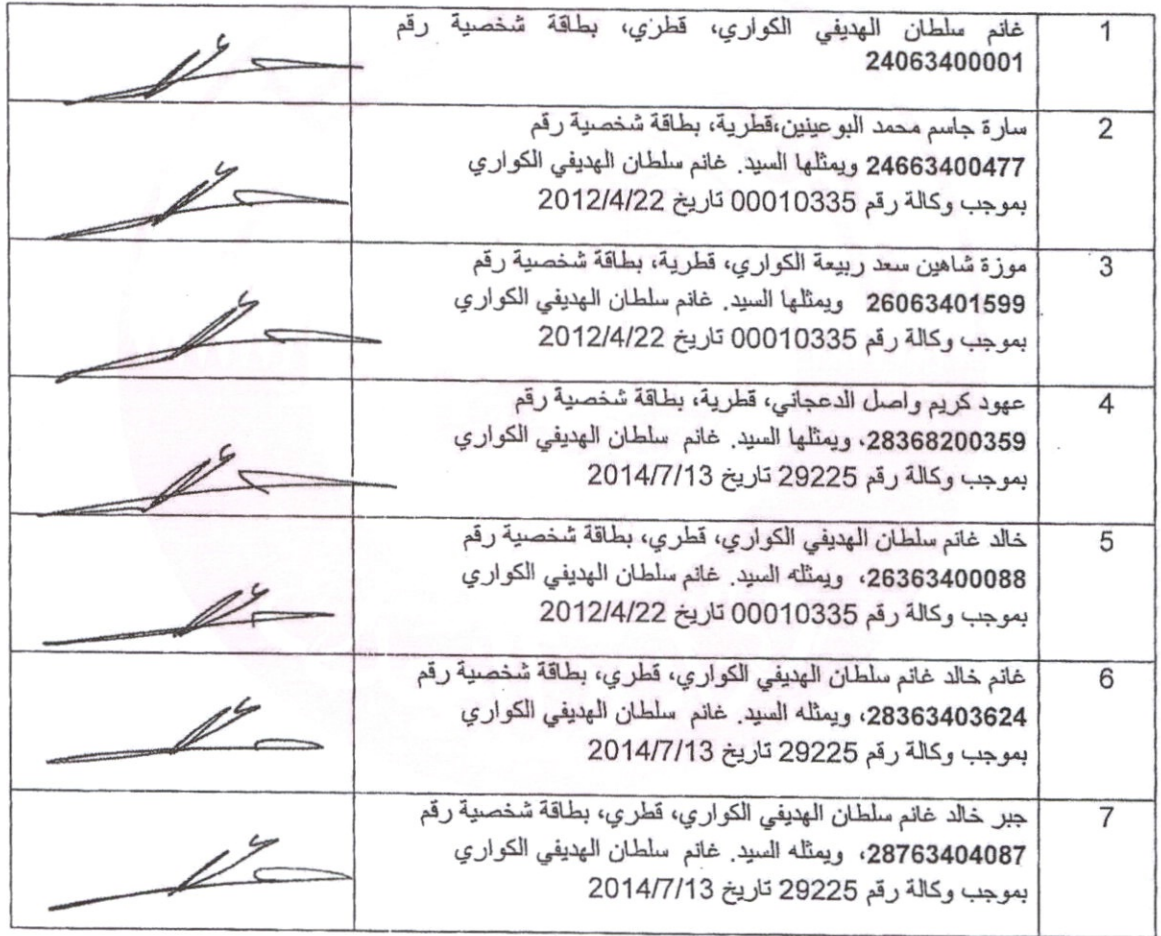 1
غانم سلطان الهديفي الكواري، قطري، بطاقة شخصية رقم
24063400001
2
سارة جاسم محمد البوعينين،قطرية، بطاقة شخصية رقم
24663400477 ويمثلها السيد. غانم سلطان الهديفي الكواري
بموجب وكالة رقم 00010335 تاريخ 2012/4/22
3
موزة شاهين سعد ربيعة الكواري، قطرية، بطاقة شخصية رقم
26063401599 ويمثلها السيد. غانم سلطان الهديفي الكواري
بموجب وكالة رقم 00010335 تاريخ 2012/4/22
4
عهود كريم واصل الدعجاني، قطرية، بطاقة شخصية رقم
28368200359، ويمثلها السيد. غانم سلطان الهديفي الكواري
بموجب وكالة رقم 29225 تاريخ 2014/7/13
5
خالد غانم سلطان الهديفي الكواري، قطري، بطاقة شخصية رقم
26363400088، ويمثله السيد. غانم سلطان الهديفي الكواري
بموجب وكالة رقم 00010335 تاريخ 2012/4/22
6
غانم خالد غانم سلطان الهديفي الكواري، قطري، بطاقة شخصية رقم
28363403624، ويمثله السيد. غانم سلطان الهديفي الكواري
بموجب وكالة رقم 29225 تاريخ 2014/7/13
7
جبر خالد غانم سلطان الهديفي الكواري، قطري، بطاقة شخصية رقم
28763404087، ويمثله السيد. غانم سلطان الهديفي الكواري
بموجب وكالة رقم 29225 تاريخ 2014/7/13